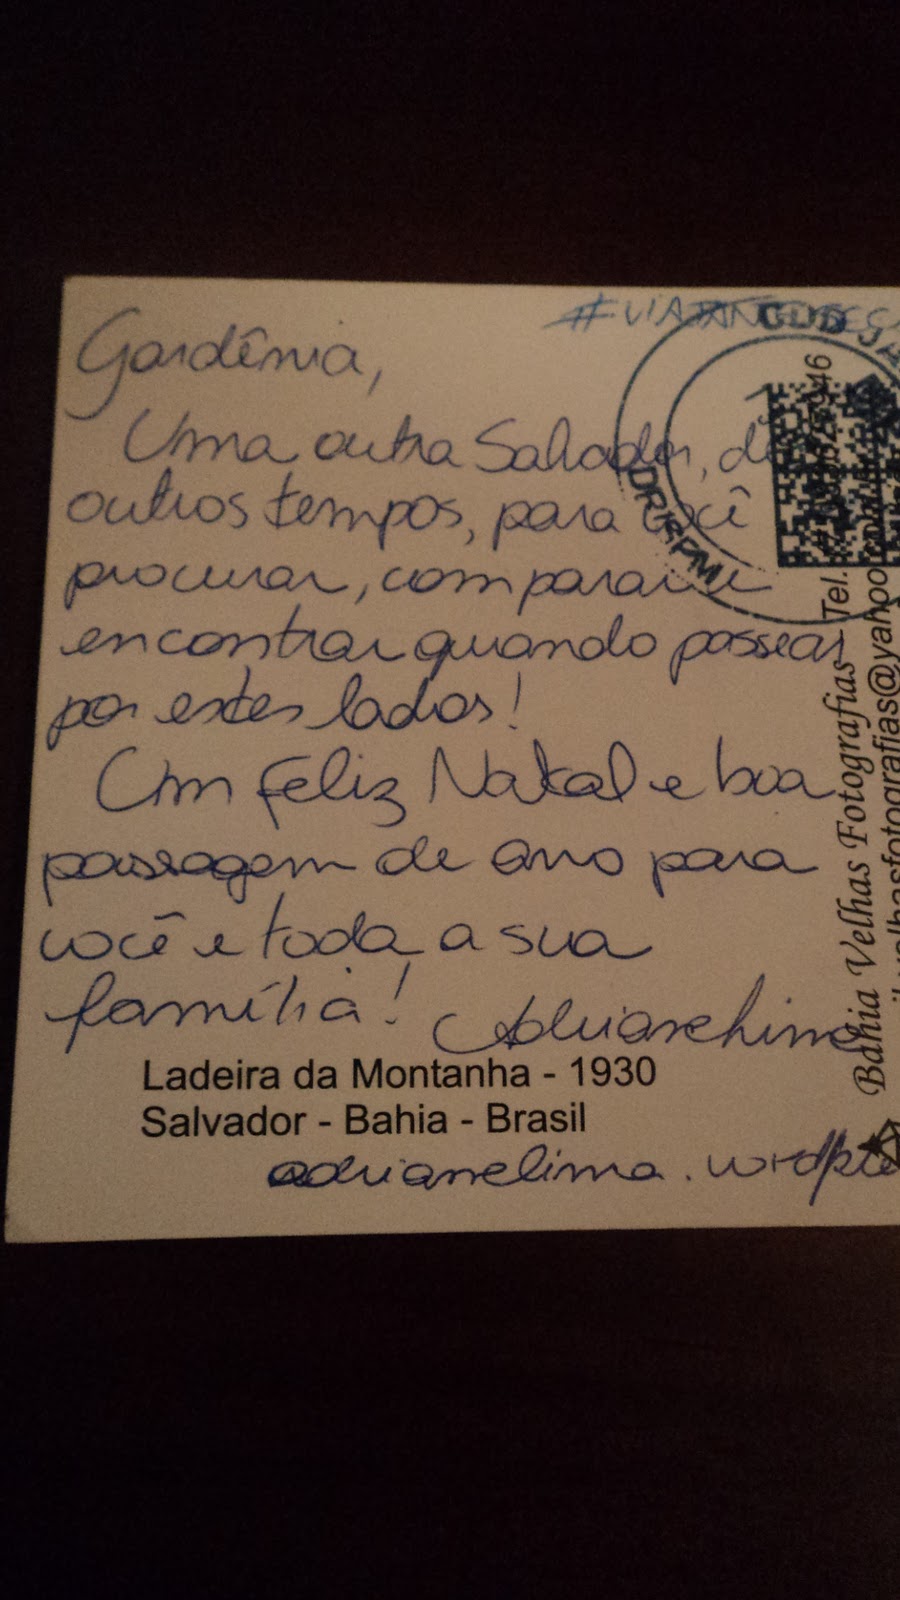 Gardênia,
Uma outra Salvador, de
outros tempos, para você
procurar, comparar e
encontrar quando passear
por estes lados!
Um feliz Natal e boa
passagem de ano para
você e toda a sua
família! Adriane Lima
Ladeira da Montanha - 1930
Salvador - Bahia - Brasil
adrianelima.
Bahia Velhas Fotografias
Tel.
DR/SPM